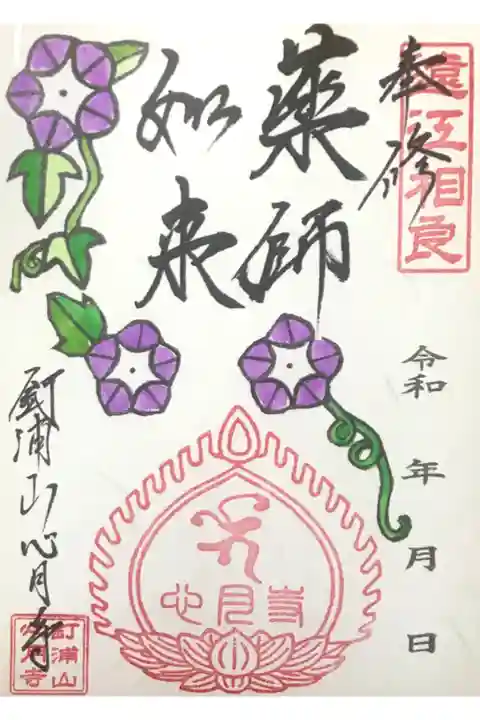 遠江相良
奉修
薬師
如来
令和　年　月　日
心月寺
釘浦山心月寺
釘浦山
心月寺